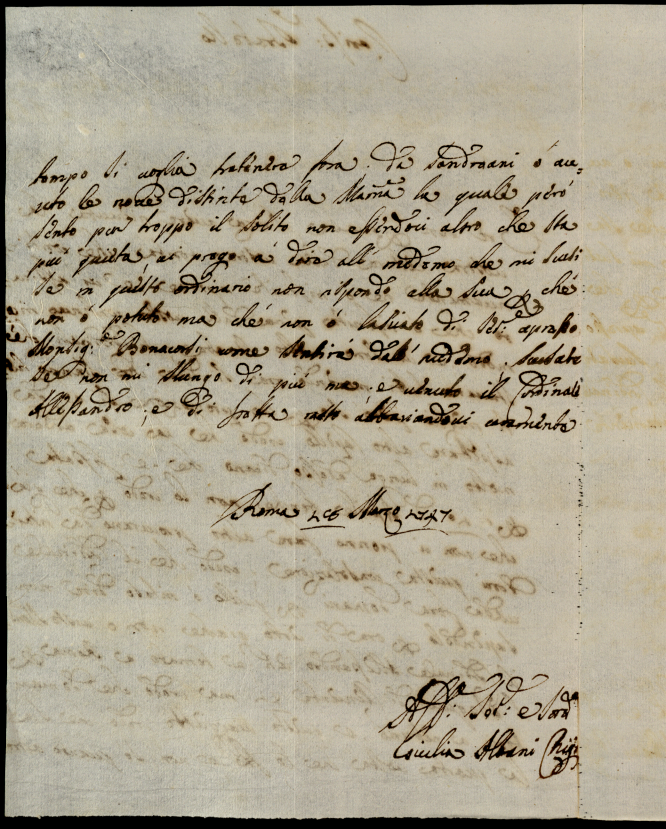 tempo si voglia tratenere fora; da Sandrgani ó au=
uto le noue distinte della Marña la quale peró
sento pur troppo il solito non essendoci altro che sta
piu quieta ui prego á dire all' medemo che mi scusi
se in questo ordinario non rispondo alla sua, che
non ó potuto ma che non ó lasciato di apresso
Monsig:e Bonacorsi come sentirá dall' medemo. scusate
se non mi slungo di piu ma, e uenuto il Cardinale
Allessandro, e di fretta resto abbraciandoui caramente
Roma 18 Marzo 1747
Aff:ma e Sor:lla
Cicilia Albani Chigi